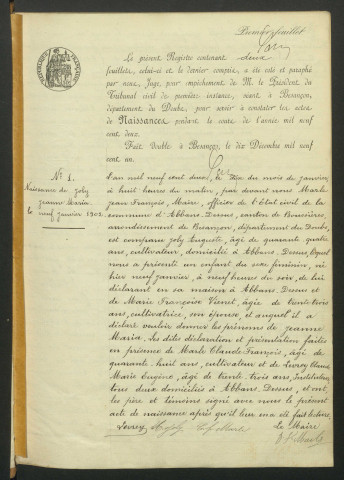 Premier feuillet
RÉPUBLIQUE FRANÇAISE
Le présent Registre contenant deux
feuillets, celui-ci et le dernier compris, a été coté et paraphé
par nous, Juge, pour empêchement de M. le Président du
Tribunal civil de première instance, séant à Besançon,
département du Doubs, pour servir à constater les actes
de Naissances pendant le cours de l'année mil neuf
cent deux.
Fait double à Besançon, le dix Décembre mil neuf
cent un.
N° 1.
Naissance de Joly
Jeanne Maria
le neuf janvier 1902
L'an mil neuf cent deux, le dix du mois de janvier
à huit heures du matin, par devant nous Marle
Jean François, Maire, officier de l'état civil de la
commune d'Abbans-Dessus, canton de Boussières,
arrondissement de Besançon, département du Doubs,
est comparu Joly Auguste, âgé de quarante quatre
ans, cultivateur, domicilié à Abbans-Dessus, lequel
nous a présenté un enfant du sexe féminin, né
hier neuf janvier, à neuf heures du soir, de lui
déclarant en sa maison à Abbans-Dessus et
de Marie Françoise Vienet, âgée de trente-trois
ans, cultivatrice, son épouse, et auquel il a
déclaré vouloir donner les prénoms de Jeanne
Maria. Les dites déclaration et présentation faites
en présence de Marle Claude François, âgé de
quarante-huit ans, cultivateur et de Lovrey
Marie Eugène, âgé de trente-trois ans, Instituteur,
tous deux domiciliés à Abbans-Dessus, et ont
les père et témoins signé avec nous le présent
acte de naissance après qu'il leur en a été fait lecture.
Lovrey A Joly Marle Le Maire
Marle